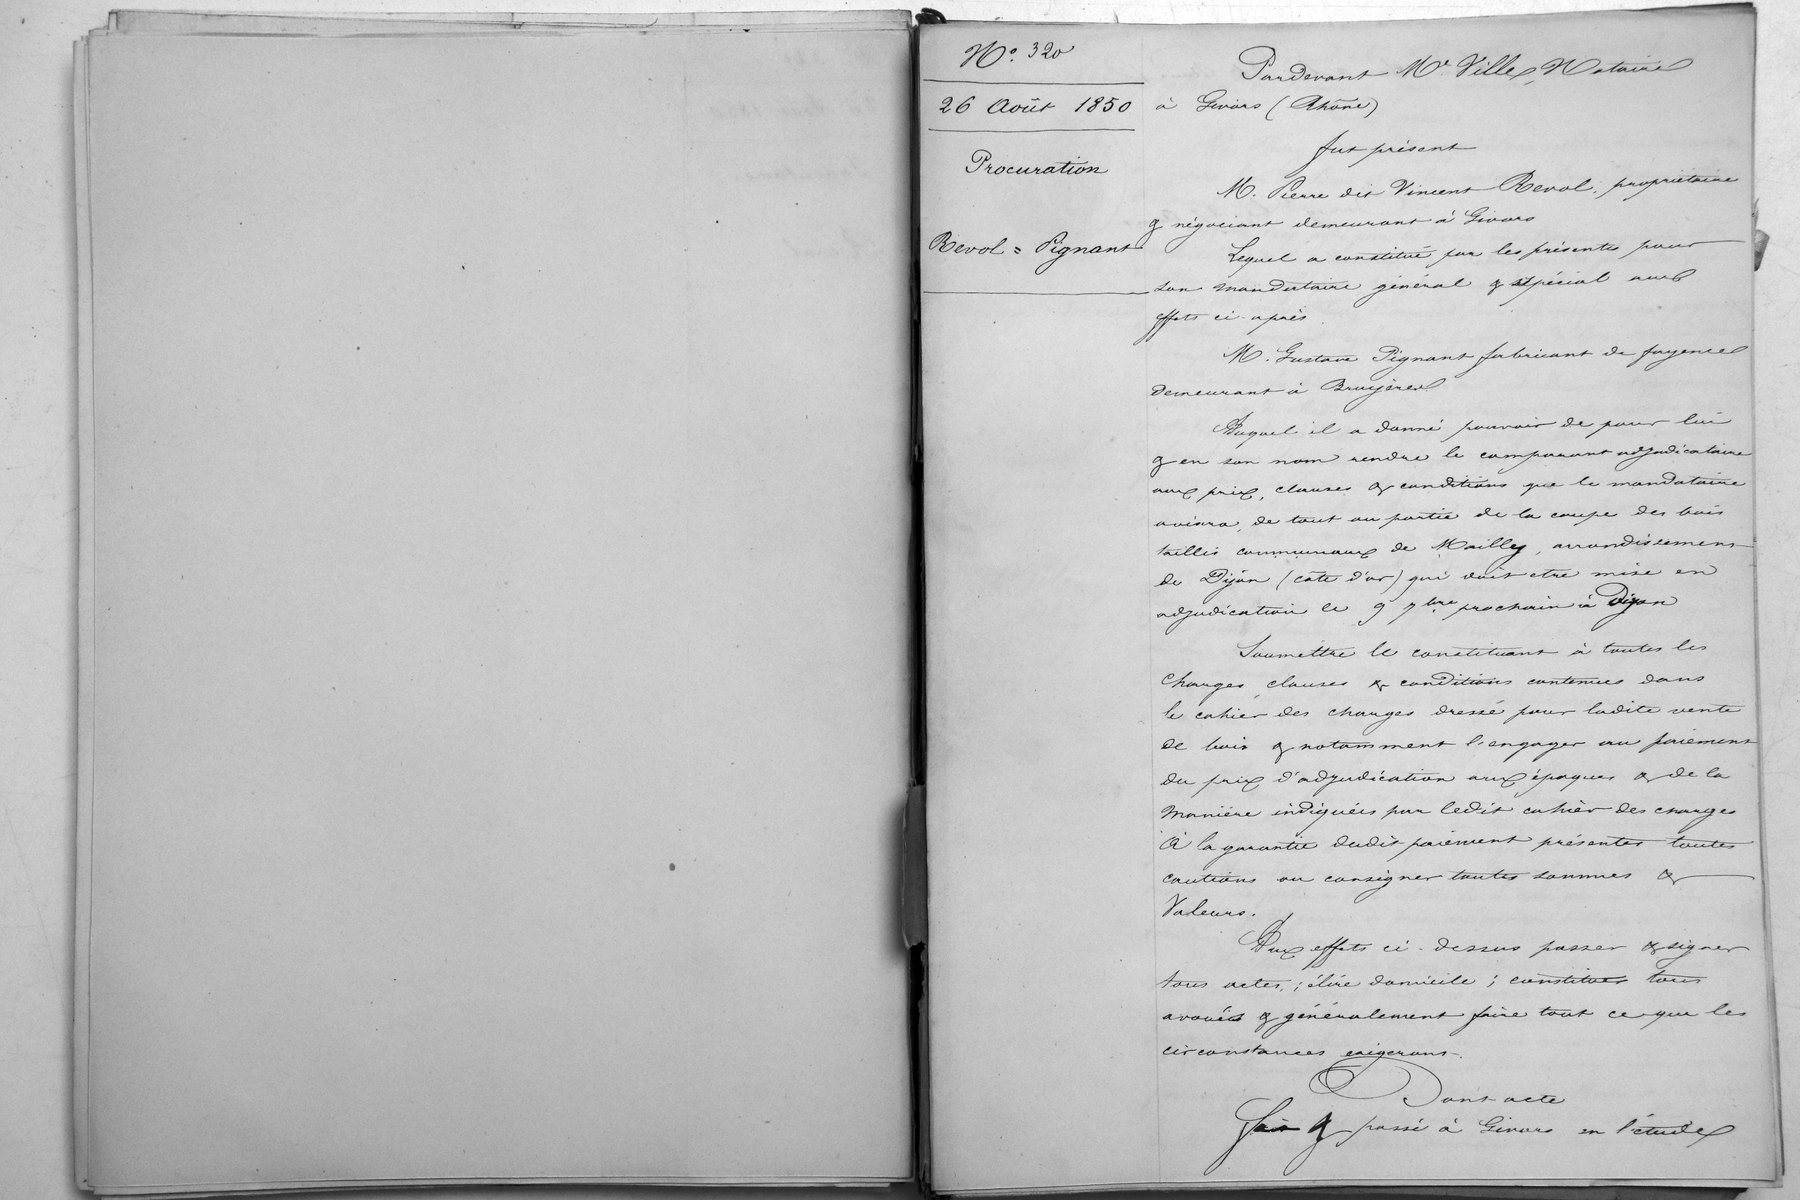 N.° 320
26 Août 1850
Procuration
Revol = Pignant
Pardevant Me Ville, Notaire
à Givors (Rhône)
fut présent
M. Pierre dit Vincent Revol, propriétaire
& négociant demeurant à Givors
Lequel a constitué par les présentes pour
son mandataire général & spécial aux
effets ci-après
M. Gustave Pignant fabricant de fayence
demeurant à Bruyères
Auquel il a donné pouvoir de pour lui
& en son nom rendre le comparant adjudicataire
aux prix, clauses & conditions que le mandataire
avisera, de tout ou partie de la coupe des bois
taillis communaux de Mailly, arrondissement
de Dijon (côte d'or) qui doit etre mise en
adjudication le 9 7bre prochain à Dijon
Soumettre le constituant à toutes les
charges, clauses & conditions contenues dans
le cahier des charges dressé pour ladite vente
de bois & notamment l'engager au paiement
du prix d'adjudication aux époques & de la
manière indiquées par ledit cahier des charges
À la garantie dudit paiement présenter toutes
cautions ou consigner toutes sommes &
Valeurs.
Aux effets ci-dessus passer & signer
tous actes ; élire domicile ; constituer tous
avoués & généralement faire tout ce que les
circonstances exigeront.
Dont acte
Fait & passé à Givors en l'étude